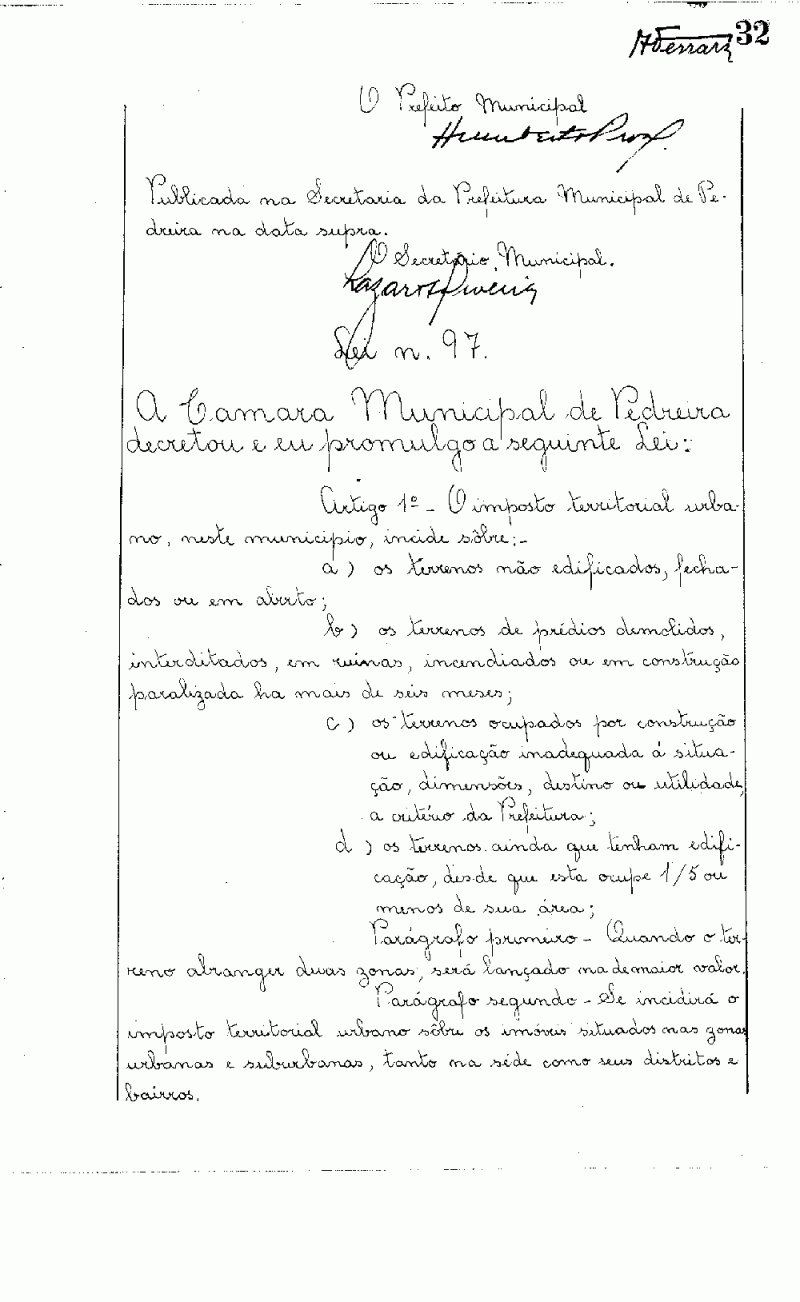 32
O Prefeito Municipal
Publicada na Secretaria da Prefeitura Municipal de Pe-
dreira na data supra.
O Secretário Municipal.
Lei n. 97.
A Camara Municipal de Pedreira
decretou e eu promulgo a seguinte Lei:
Artigo 1º - O imposto territorial urba-
no, neste municipio, incide sôbre:-
a) os terrenos não edificados, fecha-
dos ou em aberto;
b) os terrenos de prédios demolidos,
interditados, em ruinas, incendiados ou em construção
paralizada ha mais de seis meses;
c) os terrenos ocupados por construção
ou edificação inadequada á situa-
ção, dimensões, destino ou utilidade,
a critério da Prefeitura;
d) os terrenos ainda que tenham edifi-
cação, desde que esta ocupe 1/5 ou
menos de sua área;
Parágrafo primeiro - Quando o ter-
reno abranger duas zonas, será lançado na de maior valor.
Parágrafo segundo - Se incidirá o
imposto territorial urbano sôbre os imóveis situados nas zonas
urbanas e suburbanas, tanto na séde como seus distritos e
bairros.